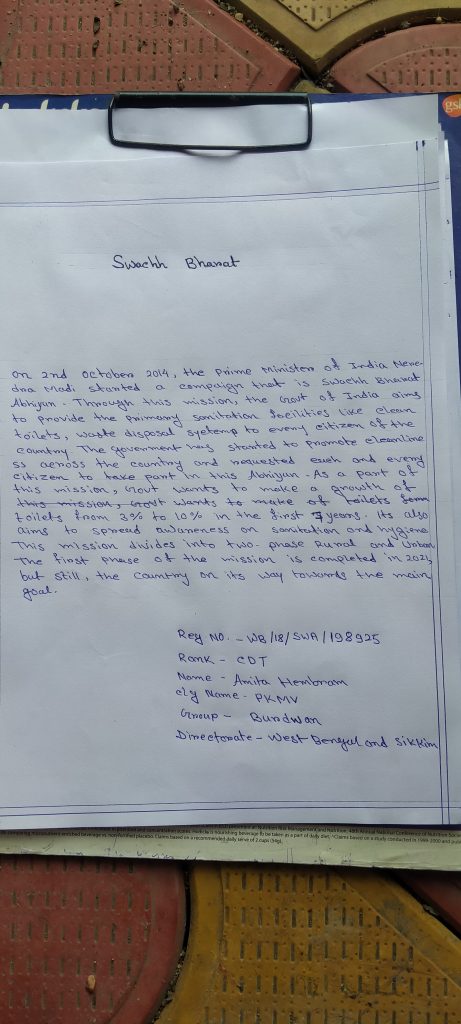 gsk
Swachh Bharat
On 2nd October 2014, the Prime Minister of India Nere-
dra Madi started a campaign that is Swachh Bharat
Abhiyan. Through this mission, the Govt of India aims
to provide the primary sanitation facilities like clean
toilets, waste disposal systemp to every citizen of the
country. The government has started to promote cleanline
ss across the country and requested each and every
citizen to take part in this Abhiyan. As a part of
this mission, Govt wants to make a growth of
this mission, Govt wants to make of toilets from
toilets from 3% to 10% in the first 7 years. Its also
aims to spread awaneness on sanitation and hygiene
This mission divides into two phase Rural and Urban
The first phase of the mission is completed in 2021,
but still, the country on its way towards the main
goal.
Reg NO. - WB/18/SWA/198925
Rank - CDT
Name - Amita Hembram
cly Name - PKMV
Group - Burdwan
Directorate - West Bengal and Sikkim